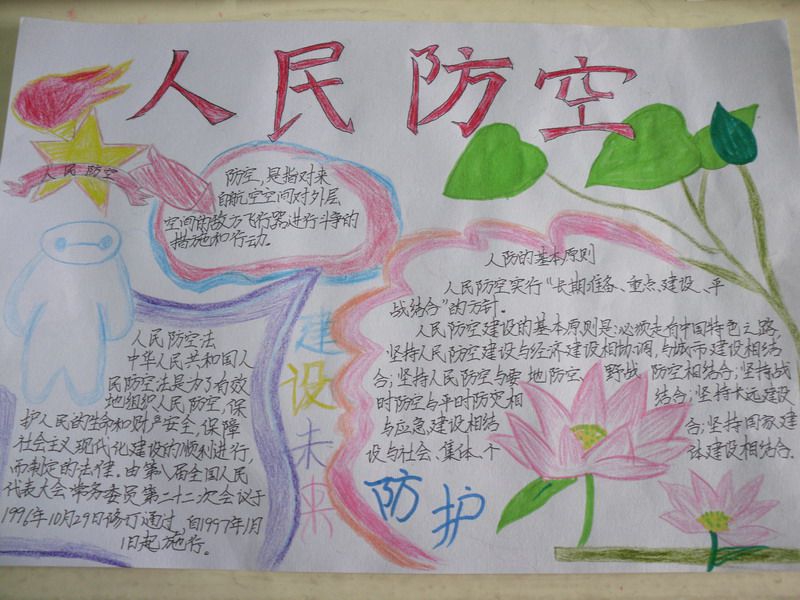 人民防空
人民防空
防空,是指对来
自航空空间对外层
空间的敌方飞行器进行斗争的
措施和行动。
人民防空法
中华人民共和国人
民防空法是为了有效
地组织人民防空,保
护人民的生命和财产安全,保障
社会主义现代化建设的顺利进行,
而制定的法律。由第八届全国人民
代表大会常务委员第二十二次会议于
1996年10月29日修订通过,自1997年1月
1日起施行。
建设未来
人防的基本原则
人民防空实行“长期准备、重点建设、平
战结合”的方针。
人民防空建设的基本原则是:必须走有中国特色之路,
坚持人民防空建设与经济建设相协调,与城市建设相结
合;坚持人民防空与要地防空、野战防空相结合;坚持战
时防空与平时防灾相结合;坚持长远建设
与应急建设相结合;坚持国家建
设与社会、集体、个体建设相结合.
防护